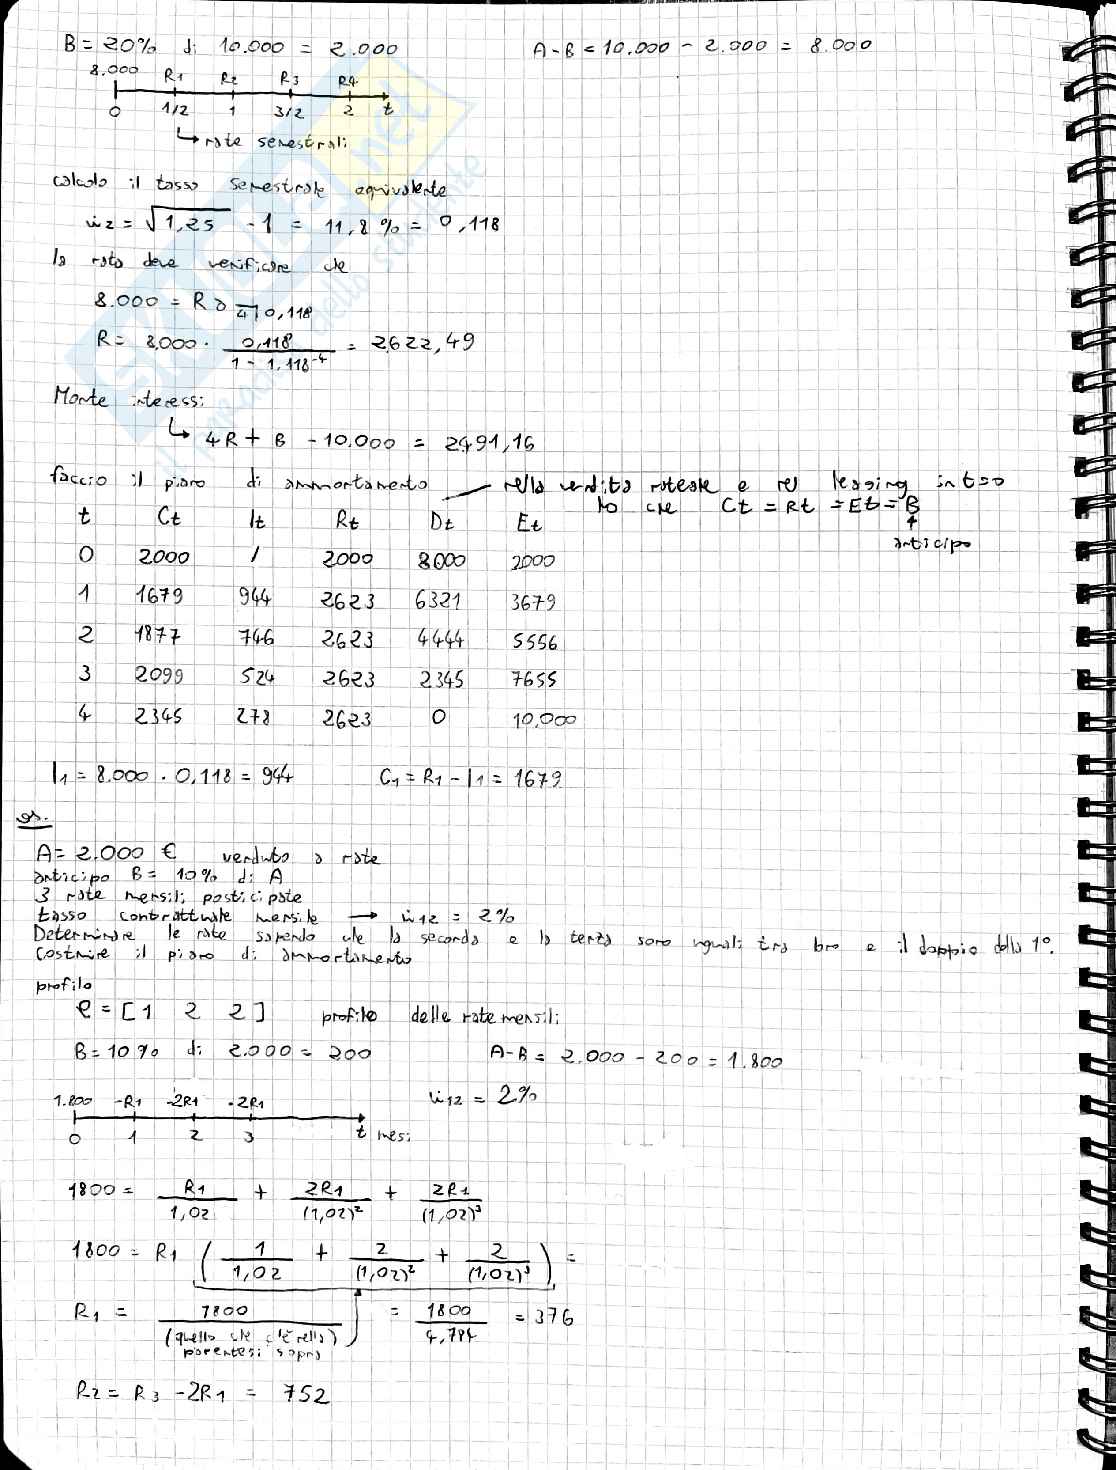 B = 20% di 10.000 = 2.000 A-B = 10.000 - 2.000 = 8.000
8.000 R1 R2 R3 R4
0 1/2 1 3/2 2 t
↳ rate semestrali
calcolo il tasso semestrale equivalente
i2 = √1,25 - 1 = 11,8% = 0,118
la rata deve verificare che
8.000 = R a 4̅| 0,118
R = 8.000 · 0,118 / (1 - 1,118^-4) = 2622,49
Monte interessi
↳ 4R + B - 10.000 = 2491,16
faccio il piano di ammortamento — nella vendita rateale e nel leasing in t=0
ho che Ct = Rt = Et = B
↑
anticipo
t Ct It Rt Dt Et
0 2000 / 2000 8000 2000
1 1679 944 2623 6321 3679
2 1877 746 2623 4444 5556
3 2099 524 2623 2345 7655
4 2345 278 2623 0 10.000
I1 = 8.000 · 0,118 = 944 C1 = R1 - I1 = 1679
es.
A = 2.000 € venduto a rate
anticipo B = 10% di A
3 rate mensili posticipate
tasso contrattuale mensile → i12 = 2%
Determinare le rate sapendo che la seconda e la terza sono uguali tra loro e il doppio della 1°.
Costruire il piano di ammortamento
profilo
e = [1 2 2] profilo delle rate mensili
B = 10% di 2.000 = 200 A-B = 2.000 - 200 = 1.800
1.800 -R1 -2R1 -2R1 i12 = 2%
0 1 2 3 t mesi
1800 = R1 / 1,02 + 2R1 / (1,02)² + 2R1 / (1,02)³
1800 = R1 (1 / 1,02 + 2 / (1,02)² + 2 / (1,02)³) =
R1 = 1800 / (quello che c'è nella parentesi sopra) = 1800 / 4,784 = 376
R2 = R3 - 2R1 = 752